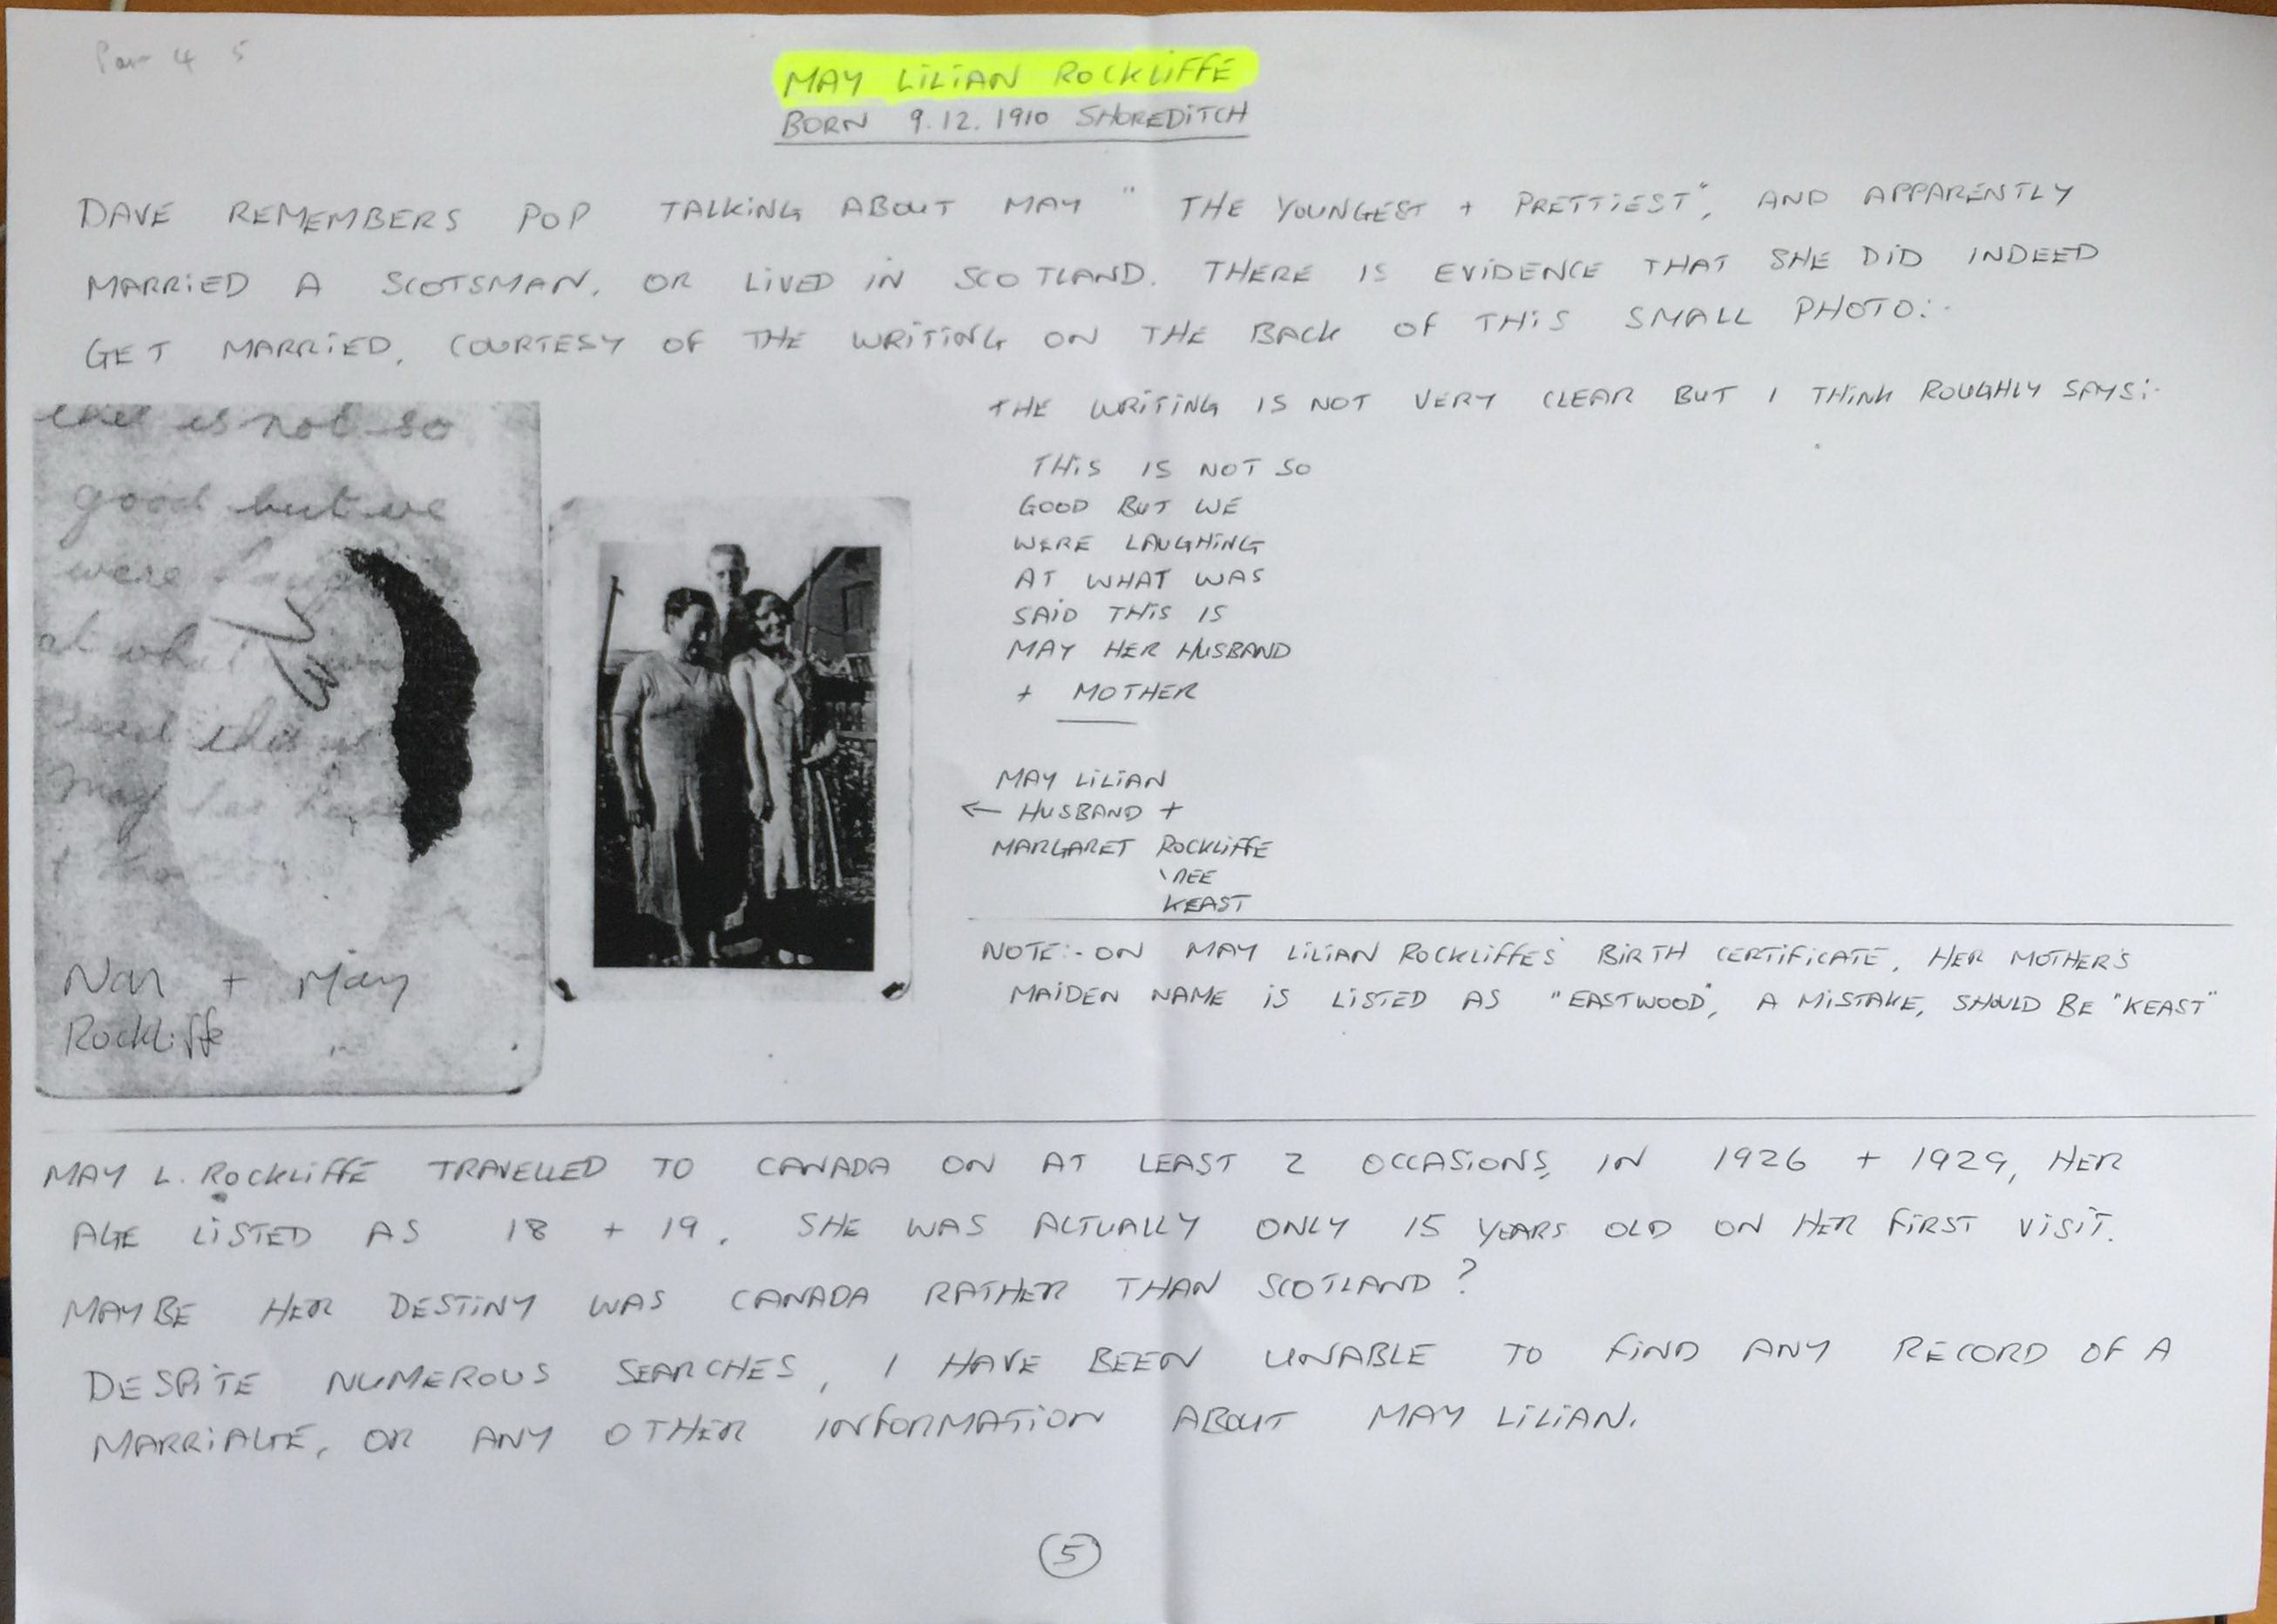 MAY LILIAN ROCKLIFFE
BORN 9.12.1910 SHOREDITCH
DAVE REMEMBERS POP TALKING ABOUT MAY "THE YOUNGEST + PRETTIEST", AND APPARENTLY
MARRIED A SCOTSMAN, OR LIVED IN SCOTLAND. THERE IS EVIDENCE THAT SHE DID INDEED
GET MARRIED, COURTESY OF THE WRITING ON THE BACK OF THIS SMALL PHOTO:-
this is not so
good but we
were
at what
said this is
May her
+
Nan + May
Rockliffe
THE WRITING IS NOT VERY CLEAR BUT I THINK ROUGHLY SAYS:-
THIS IS NOT SO
GOOD BUT WE
WERE LAUGHING
AT WHAT WAS
SAID THIS IS
MAY HER HUSBAND
+ MOTHER
MAY LILIAN
← HUSBAND +
MARGARET ROCKLIFFE
NEE
KEAST
NOTE:- ON MAY LILIAN ROCKLIFFE'S BIRTH CERTIFICATE, HER MOTHER'S
MAIDEN NAME IS LISTED AS "EASTWOOD", A MISTAKE, SHOULD BE "KEAST"
MAY L. ROCKLIFFE TRAVELLED TO CANADA ON AT LEAST 2 OCCASIONS, IN 1926 + 1929, HER
AGE LISTED AS 18 + 19. SHE WAS ACTUALLY ONLY 15 YEARS OLD ON HER FIRST VISIT.
MAYBE HER DESTINY WAS CANADA RATHER THAN SCOTLAND?
DESPITE NUMEROUS SEARCHES, I HAVE BEEN UNABLE TO FIND ANY RECORD OF A
MARRIAGE, OR ANY OTHER INFORMATION ABOUT MAY LILIAN.
5